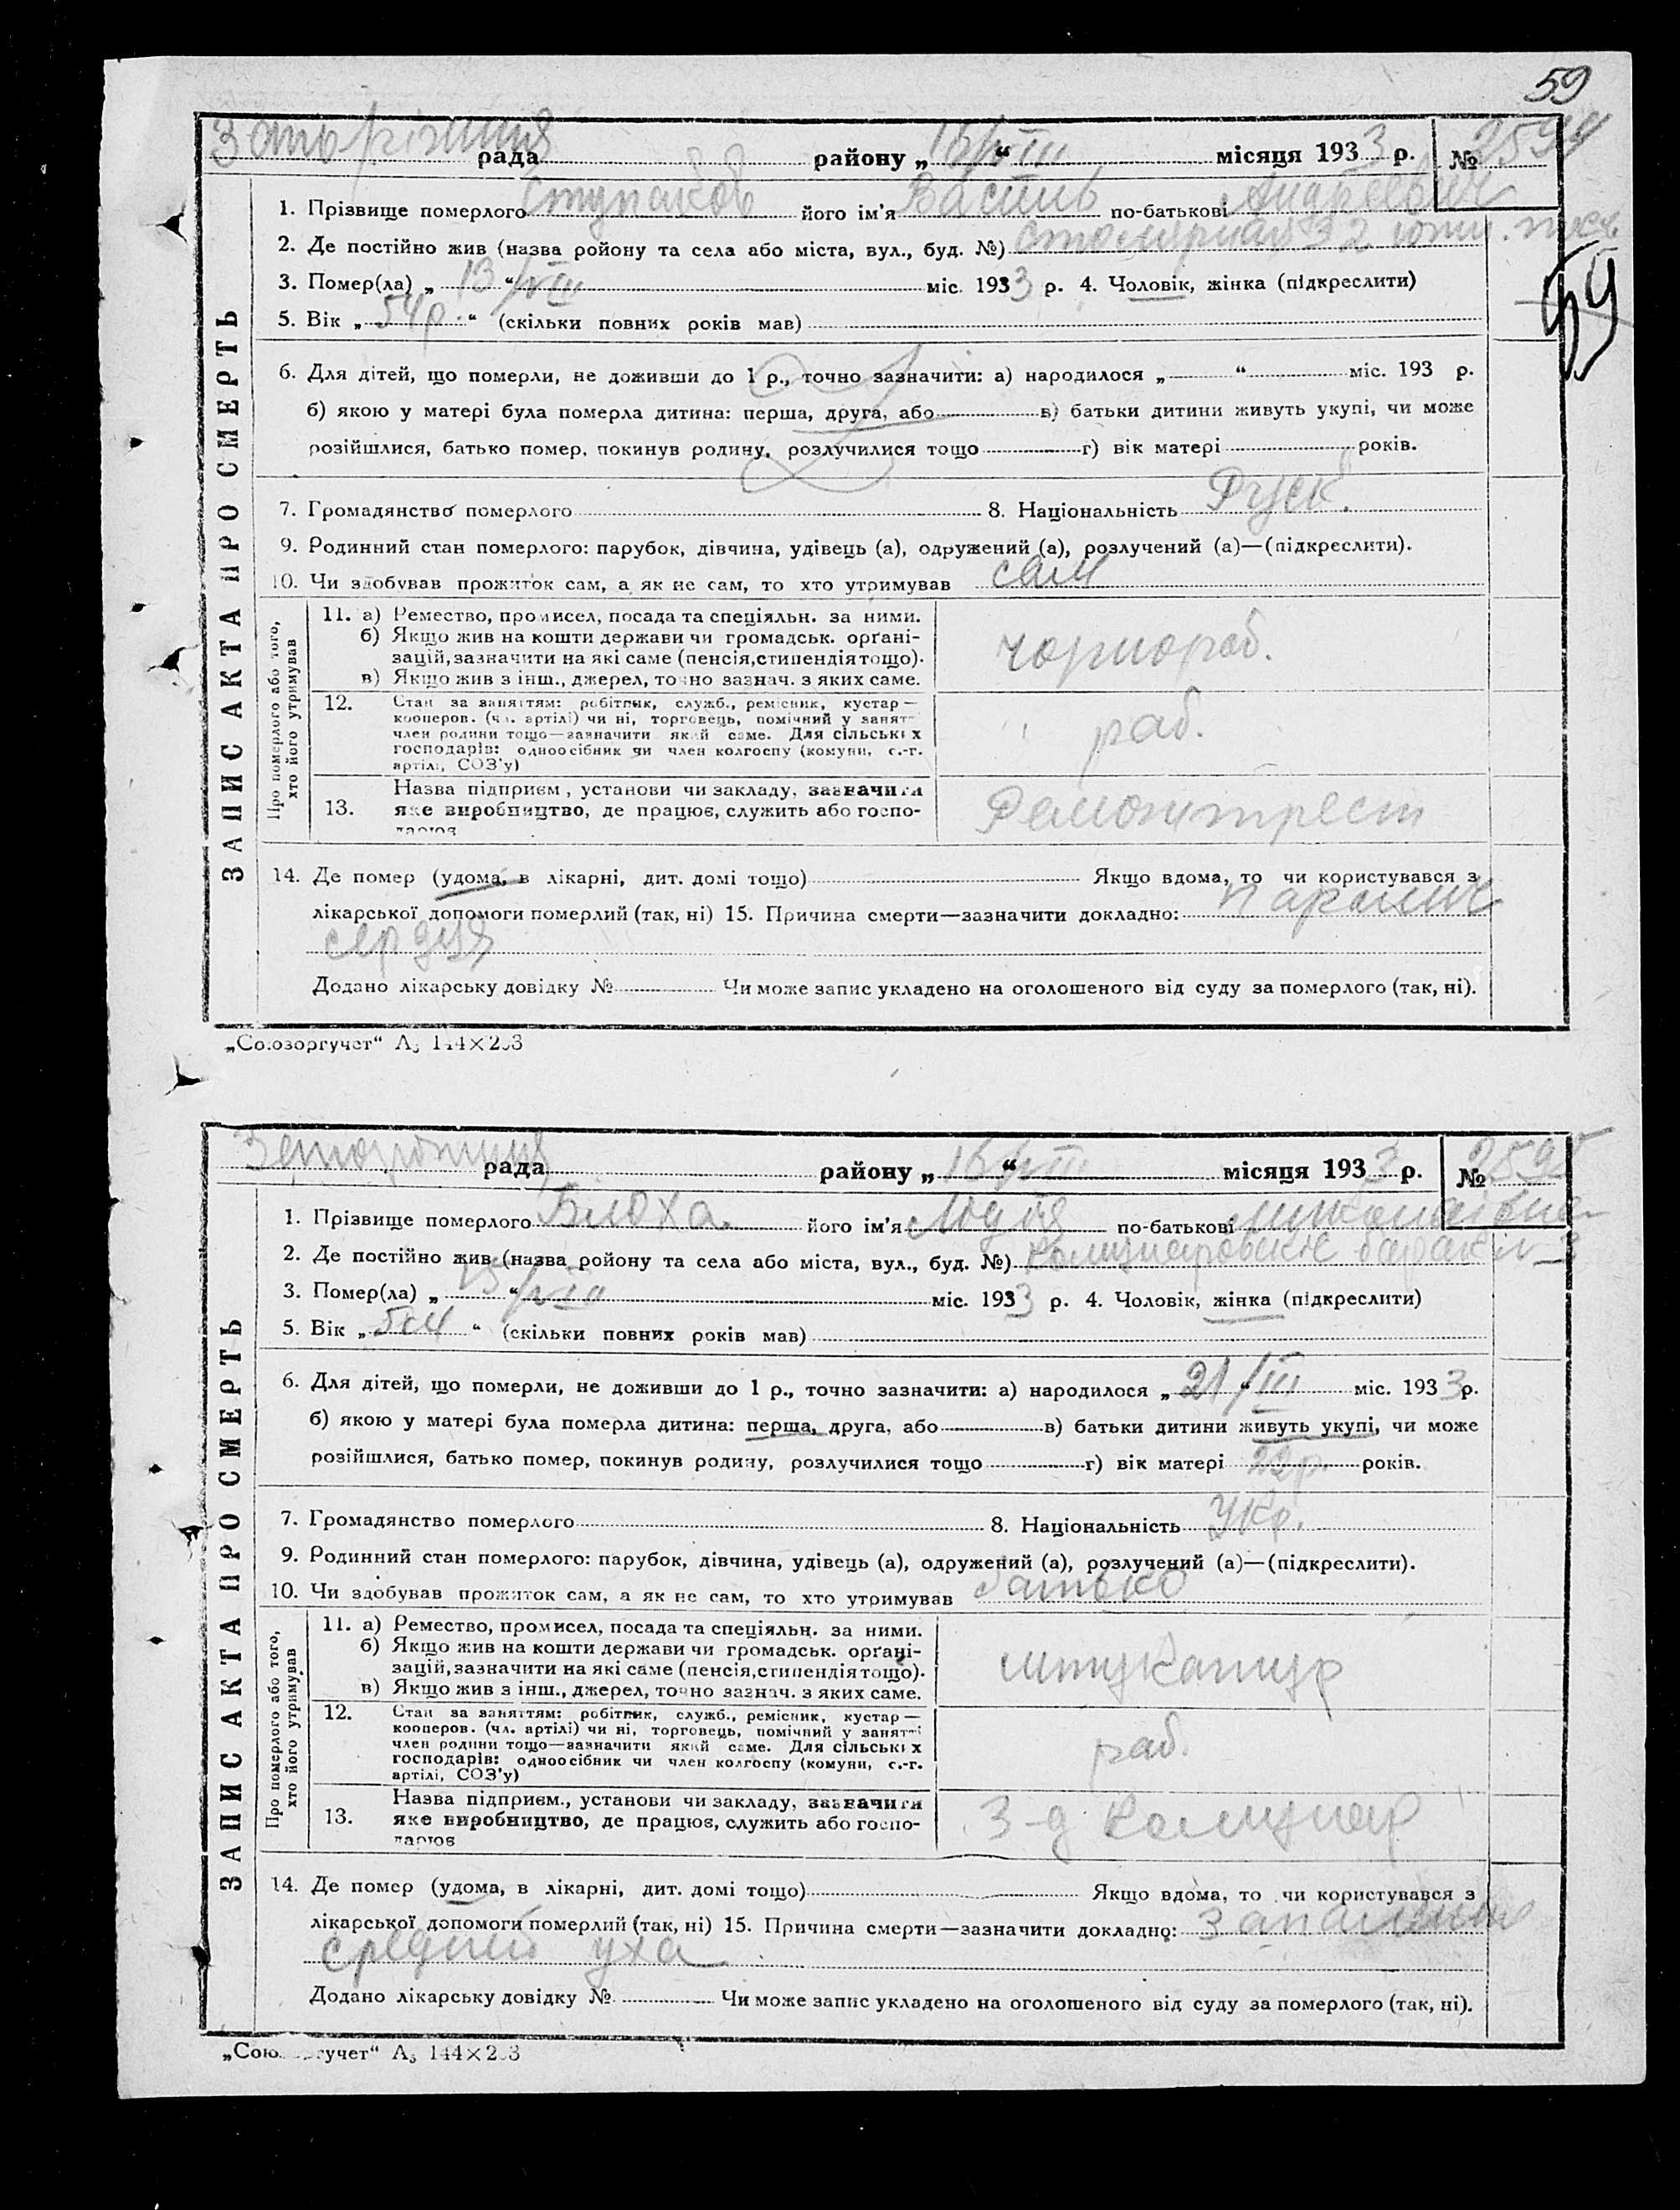 59
рада району „16/VIII“ місяця 1933 р. № 2594
1. Прізвище померлого Ступаков його ім'я Василь по-батькові Андрєєвич
2. Де постійно жив (назва ройону та села або міста, вул., буд. №)
3. Помер(ла) „13“/VIII міс. 1933 р. 4. Чоловік, жінка (підкреслити)
59
5. Вік „54 р.“ (скільки повних років мав)
6. Для дітей, що померли, не доживши до 1 р., точно зазначити: а) народилося „ “ міс. 193 р.
б) якою у матері була померла дитина: перша, друга, або в) батьки дитини живуть укупі, чи може
розійшлися, батько помер, покинув родину, розлучилися тощо г) вік матері років.
7. Громадянство померлого 8. Національність Руск.
9. Родинний стан померлого: парубок, дівчина, удівець (а), одружений (а), розлучений (а)—(підкреслити).
10. Чи здобував прожиток сам, а як не сам, то хто утримував сам
ЗАПИС АКТА ПРО СМЕРТЬ
Про померлого або того, хто його утримував
11. а) Ремество, промисел, посада та спеціяльн. за ними.
б) Якщо жив на кошти держави чи громадськ. орґані-
зацій, зазначити на які саме (пенсія, стипендія тощо).
в) Якщо жив з інш., джерел, точно зазнач. з яких саме.
чорнораб.
12. Стан за заняттям: робітник, служб., ремісник, кустар—
кооперов. (чл. артілі) чи ні, торговець, помічний у занят-
член родини тощо—зазначити який саме. Для сільських
господарів: одноосібник чи член колгоспу (комуни, с.-г.
артілі, СОЗ'у)
раб.
13. Назва підприєм., установи чи закладу, зазначити
яке виробництво, де працює, служить або госпо-
дарює
Ремонттрест
14. Де помер (удома, в лікарні, дит. домі тощо) Якщо вдома, то чи користувався з
лікарської допомоги померлий (так, ні) 15. Причина смерти—зазначити докладно: параліч
сердця
Додано лікарську довідку № Чи може запис укладено на оголошеного від суду за померлого (так, ні).
„Союзоргучет“ А5 144×203
рада району „16/VIII“ місяця 1933 р. № 2595
1. Прізвище померлого Блоха його ім'я Лидія по-батькові Миколаївна
2. Де постійно жив (назва ройону та села або міста, вул., буд. №) Комунаровские бараки № 3
3. Помер(ла) „15“/VIII міс. 1933 р. 4. Чоловік, жінка (підкреслити)
5. Вік „5 м“ (скільки повних років мав)
6. Для дітей, що померли, не доживши до 1 р., точно зазначити: а) народилося „21“/III міс. 1933 р.
б) якою у матері була померла дитина: перша, друга, або в) батьки дитини живуть укупі, чи може
розійшлися, батько помер, покинув родину, розлучилися тощо г) вік матері 22 р. років.
7. Громадянство померлого 8. Національність Укр.
9. Родинний стан померлого: парубок, дівчина, удівець (а), одружений (а), розлучений (а)—(підкреслити).
10. Чи здобував прожиток сам, а як не сам, то хто утримував батько
ЗАПИС АКТА ПРО СМЕРТЬ
Про померлого або того, хто його утримував
11. а) Ремество, промисел, посада та спеціяльн. за ними.
б) Якщо жив на кошти держави чи громадськ. орґані-
зацій, зазначити на які саме (пенсія, стипендія тощо).
в) Якщо жив з інш., джерел, точно зазнач. з яких саме.
штукатур
12. Стан за заняттям: робітник, служб., ремісник, кустар—
кооперов. (чл. артілі) чи ні, торговець, помічний у занятті
член родини тощо—зазначити який саме. Для сільських
господарів: одноосібник чи член колгоспу (комуни, с.-г.
артілі, СОЗ'у)
раб.
13. Назва підприєм., установи чи закладу, зазначити
яке виробництво, де працює, служить або госпо-
дарює
З-д Комунар
14. Де помер (удома, в лікарні, дит. домі тощо) Якщо вдома, то чи користувався з
лікарської допомоги померлий (так, ні) 15. Причина смерти—зазначити докладно: Запалення
средней уха
Додано лікарську довідку № Чи може запис укладено на оголошеного від суду за померлого (так, ні).
„Сою гучет“ А5 144×203